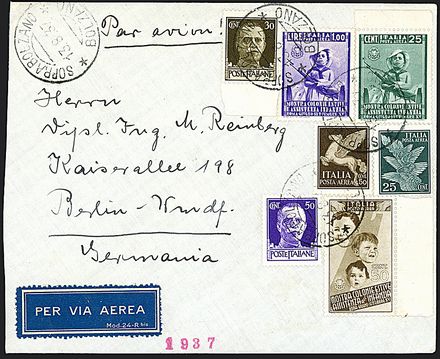 Par avion!
SOPRABOLZANO
BOLZANO
30
POSTE ITALIANE
ITALIA
LIRE 1.00
MOSTRA COLONIE ESTIVE
E ASSISTENZA INFANZIA
CENT 25
MOSTRA COLONIE ESTIVE
E ASSISTENZA INFANZIA
Herrn
Dipl. Ing. M. Reinberg
Kaiserallee 198
Berlin-Wmdf.
Germania
ITALIA
POSTA AEREA
50
ITALIA
POSTA AEREA
25
CENT
50
POSTE ITALIANE
ITALIA
50
MOSTRA COLONIE ESTIVE
PER VIA AEREA
Mod. 24-R bis
1937